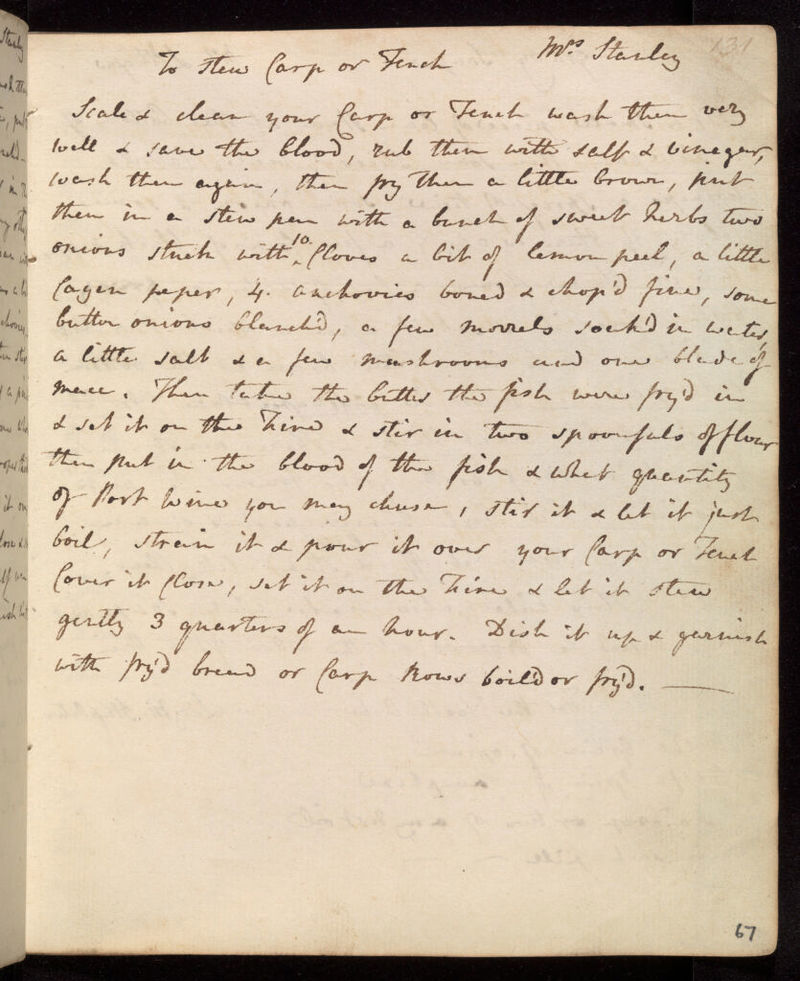 To stew Carp or Tench
Mrs Stanley
131
Scale & clean your Carp or Tench wash them very
well & save the blood, rub them with salt & vinegar,
wash them again, then fry them a little brown, put
them in a stew pan with a bunch of sweet herbs two
onions stuck with 10 Cloves a bit of lemon peel, a little
Cayen peper, 4. anchovies boned & chop'd fine, some
button onions blanch'd, a few morrels soak'd in water,
a little salt & a few mushrooms and one blade of
mace. Then take the butter the fish were fry'd in
& set it on the Fire & stir in two spoonfuls of flour
then put in the blood of the fish & what quantity
of Port wine you may chuse, stir it & let it just
boil, strain it & pour it over your Carp or Tench
Cover it Close, set it on the Fire & let it stew
gently 3 quarters of an hour. Dish it up & garnish
with fry'd bread or Carp Rows boil'd or fry'd.
67